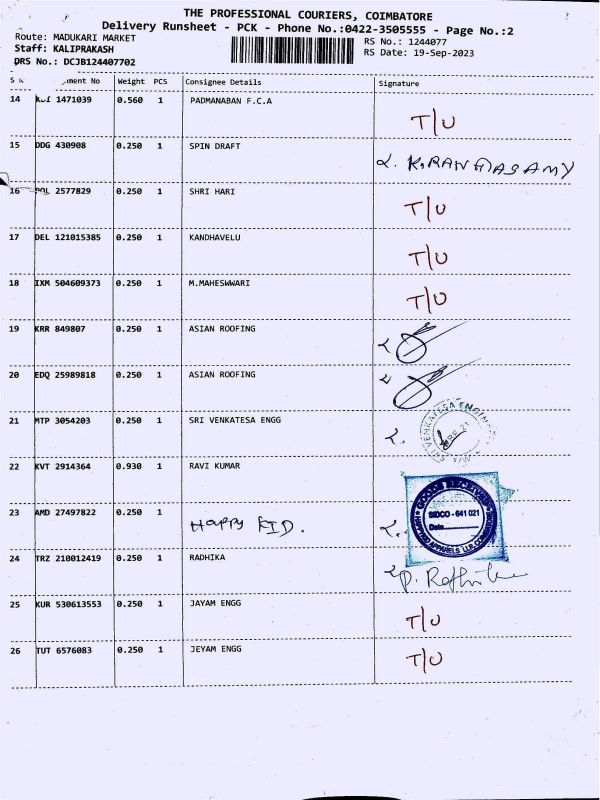 THE PROFESSIONAL COURIERS, COIMBATORE
Delivery Runsheet - PCK - Phone No.:0422-3505555 - Page No.:2
Route: MADUKARI MARKET
RS No.: 1244077
Staff: KALIPRAKASH
RS Date: 19-Sep-2023
DRS No.: DCJB124407702
No Weight PCS Consignee Details Signature
14 1471039 0.560 1 PADMANABAN F.C.A
T/U
15 DDG 430908 0.250 1 SPIN DRAFT
16 2577829 0.250 1 SHRI HARI
T/U
17 DEL 121015385 0.250 1 KANDHAVELU
T/U
18 IXM 504609373 0.250 1 M.MAHESWWARI
T/U
19 KRR 849807 0.250 1 ASIAN ROOFING
20 EDQ 25989818 0.250 1 ASIAN ROOFING
21 MTP 3054203 0.250 1 SRI VENKATESA ENGG
SRI VENKATESA
22 KVT 2914364 0.930 1 RAVI KUMAR
GOODS RECEIVED
23 AMD 27497822 0.250 1 Happy KID.
SIDCO - 641 021
Date
24 TRZ 210012419 0.250 1 RADHIKA
25 KUR 530613553 0.250 1 JAYAM ENGG
T/U
26 TUT 6576083 0.250 1 JEYAM ENGG
T/U